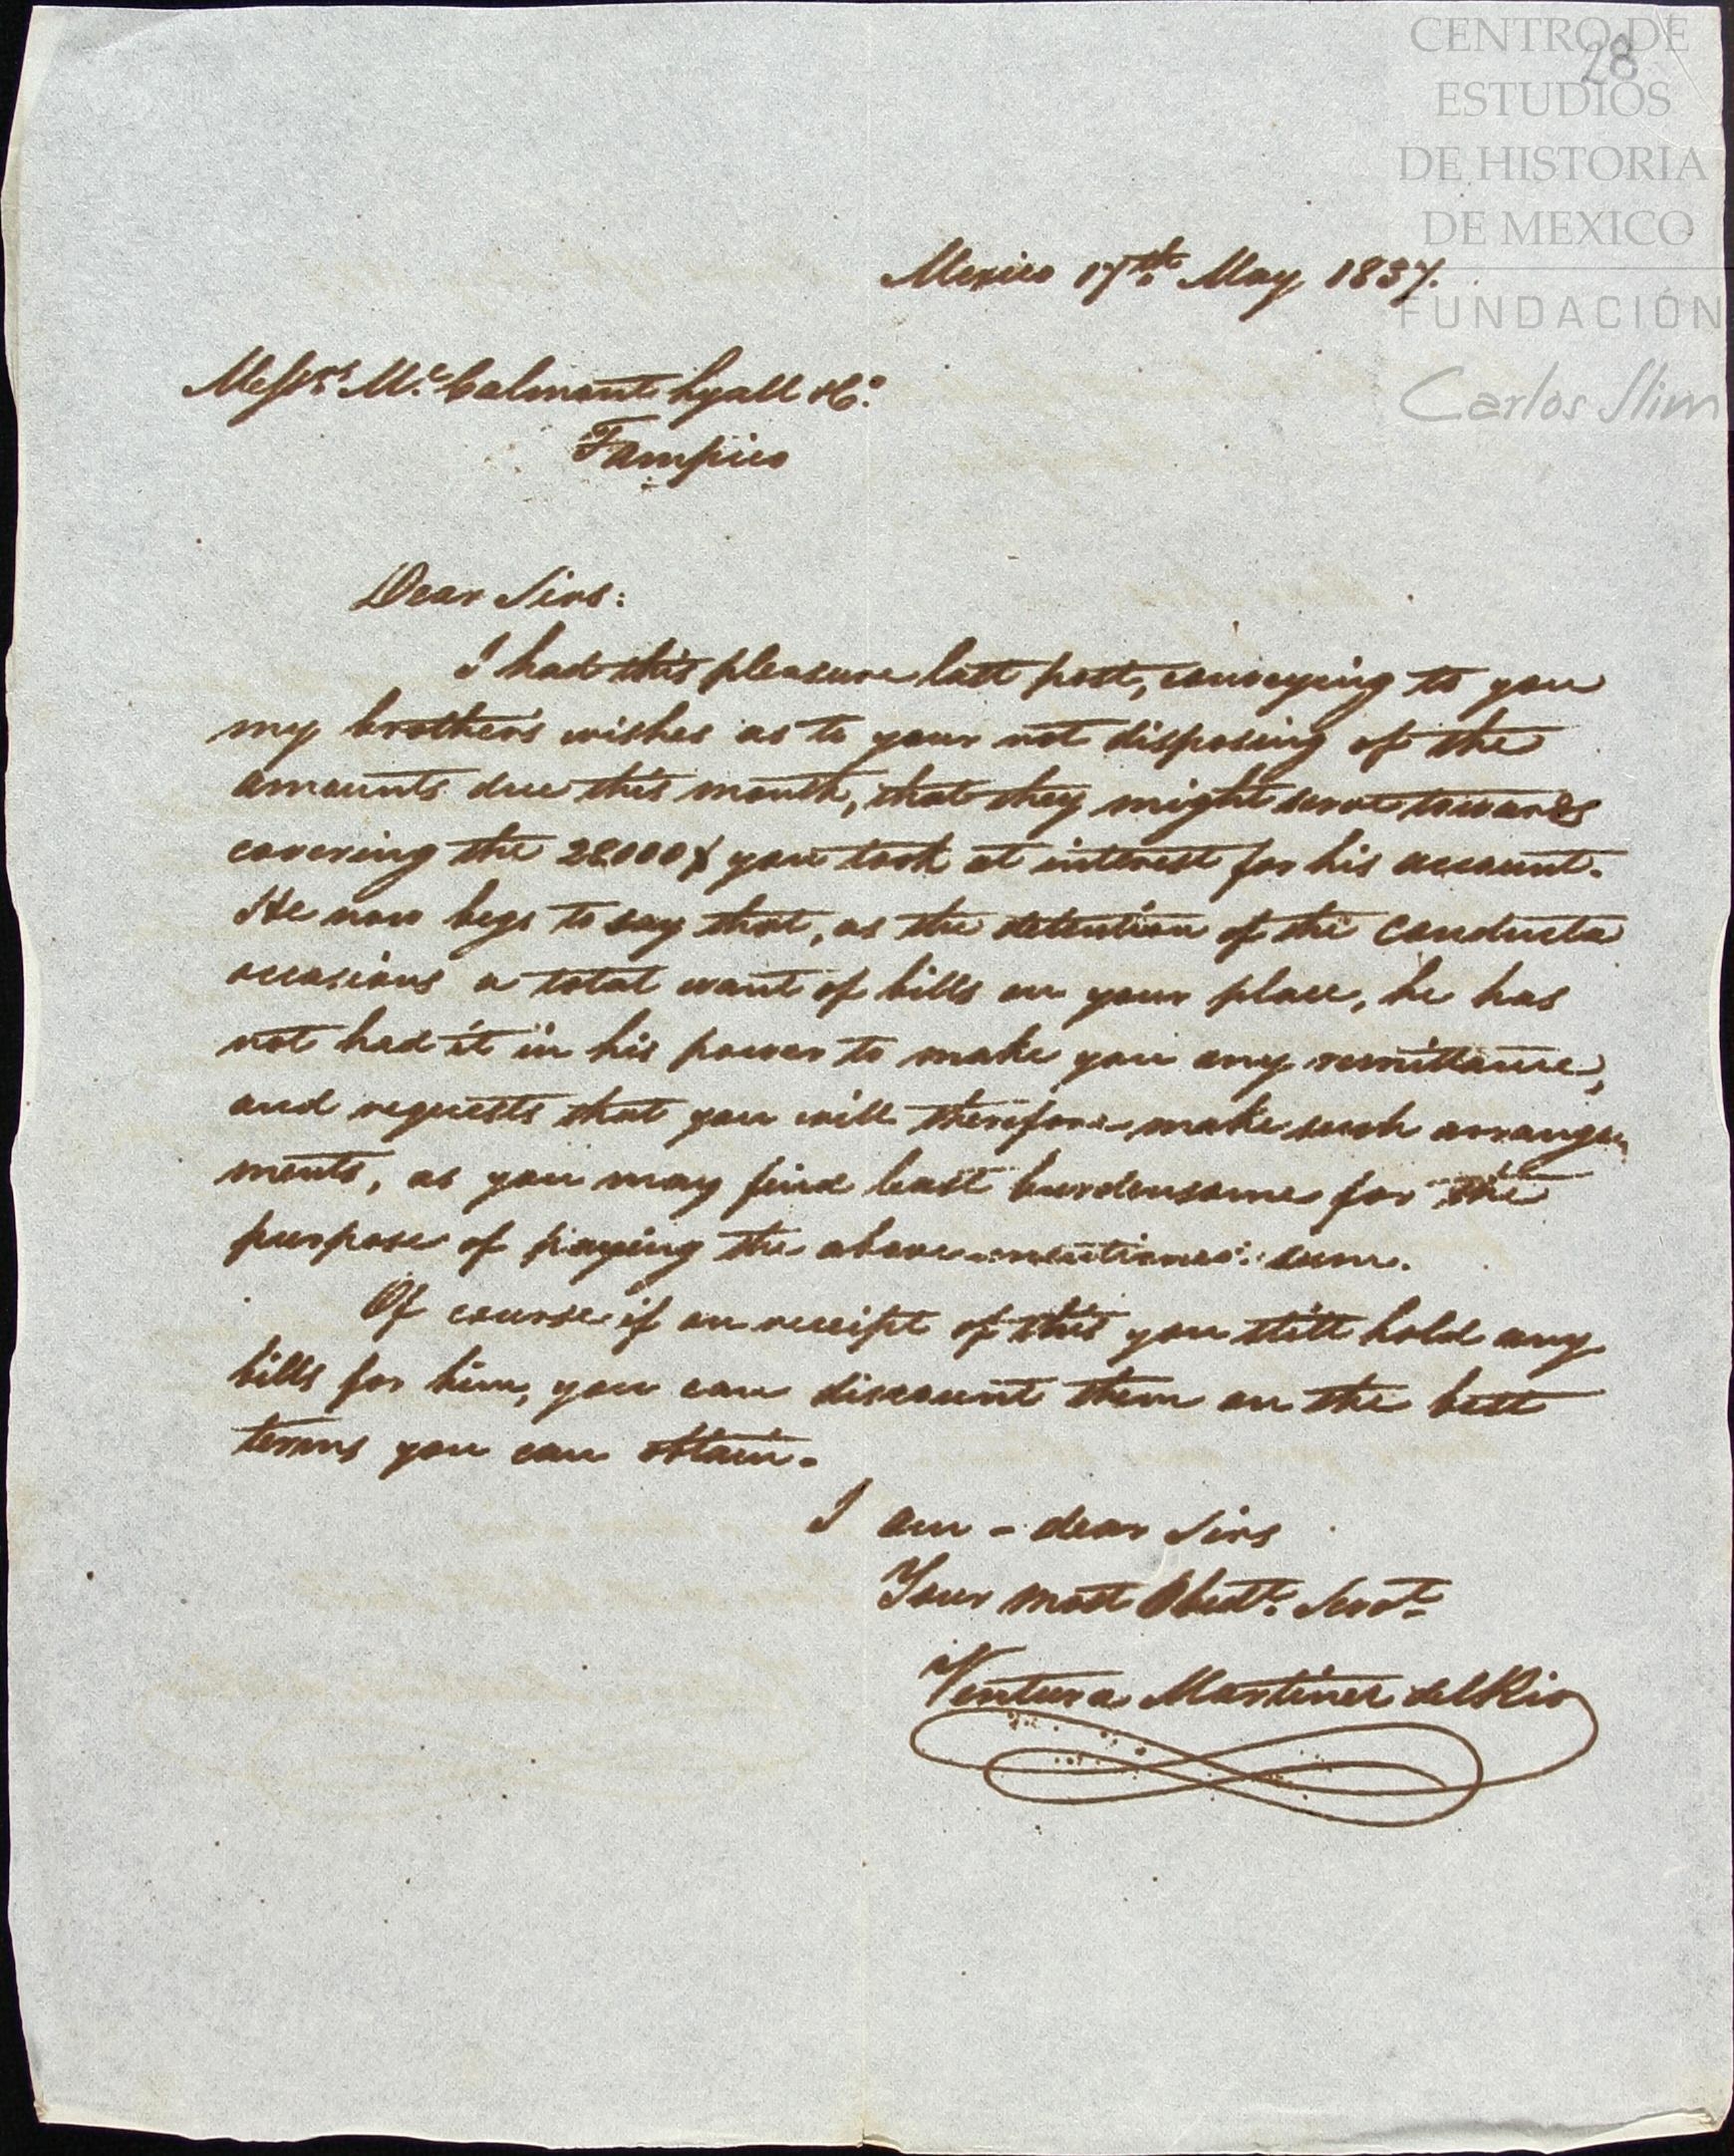 CENTRO DE
28
ESTUDIOS
DE HISTORIA
DE MEXICO
FUNDACIÓN
Carlos Slim
Mexico 17th May 1837.
Messrs McCalmont Lyall & Co.
Tampico
Dear Sirs:
I had this pleasure last post, conveying to you
my brother's wishes as to your not disposing of the
amounts due this month, that they might serve towards
covering the 28000$ you took at interest for his account.
He now begs to say that, as the detention of the Conducta
occasions a total want of bills on your place, he has
not had it in his power to make you any remittance,
and requests that you will therefore make such arrange-
ments, as you may find least burdensome for the
purpose of paying the above-mentioned sum.
Of course if on receipt of this you still hold any
bills for him, you can discount them on the best
terms you can obtain.
I am - dear Sirs
Your most Obedt. Servt.
Ventura Martinez del Rio